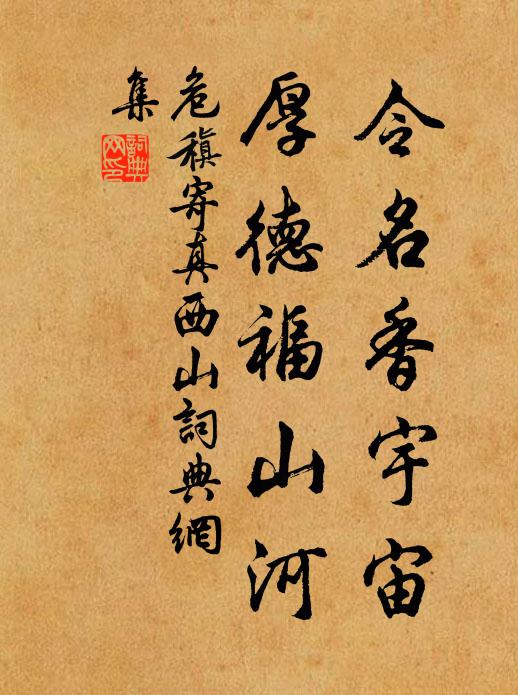 令名香宇宙
厚德福山河
危稹寄真西山詞典網
集
詞典
网印